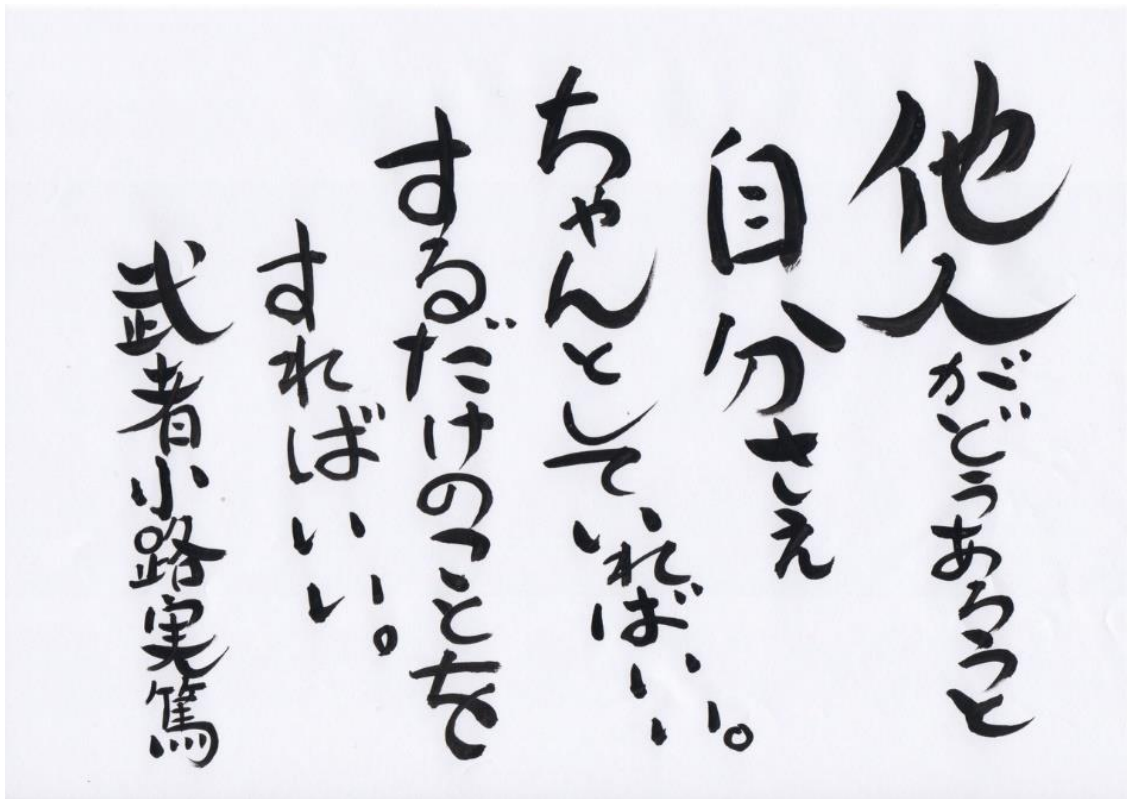 他人がどうあろうと
自分さえ
ちゃんとしていればいい。
するだけのことを
すればいい。
武者小路実篤